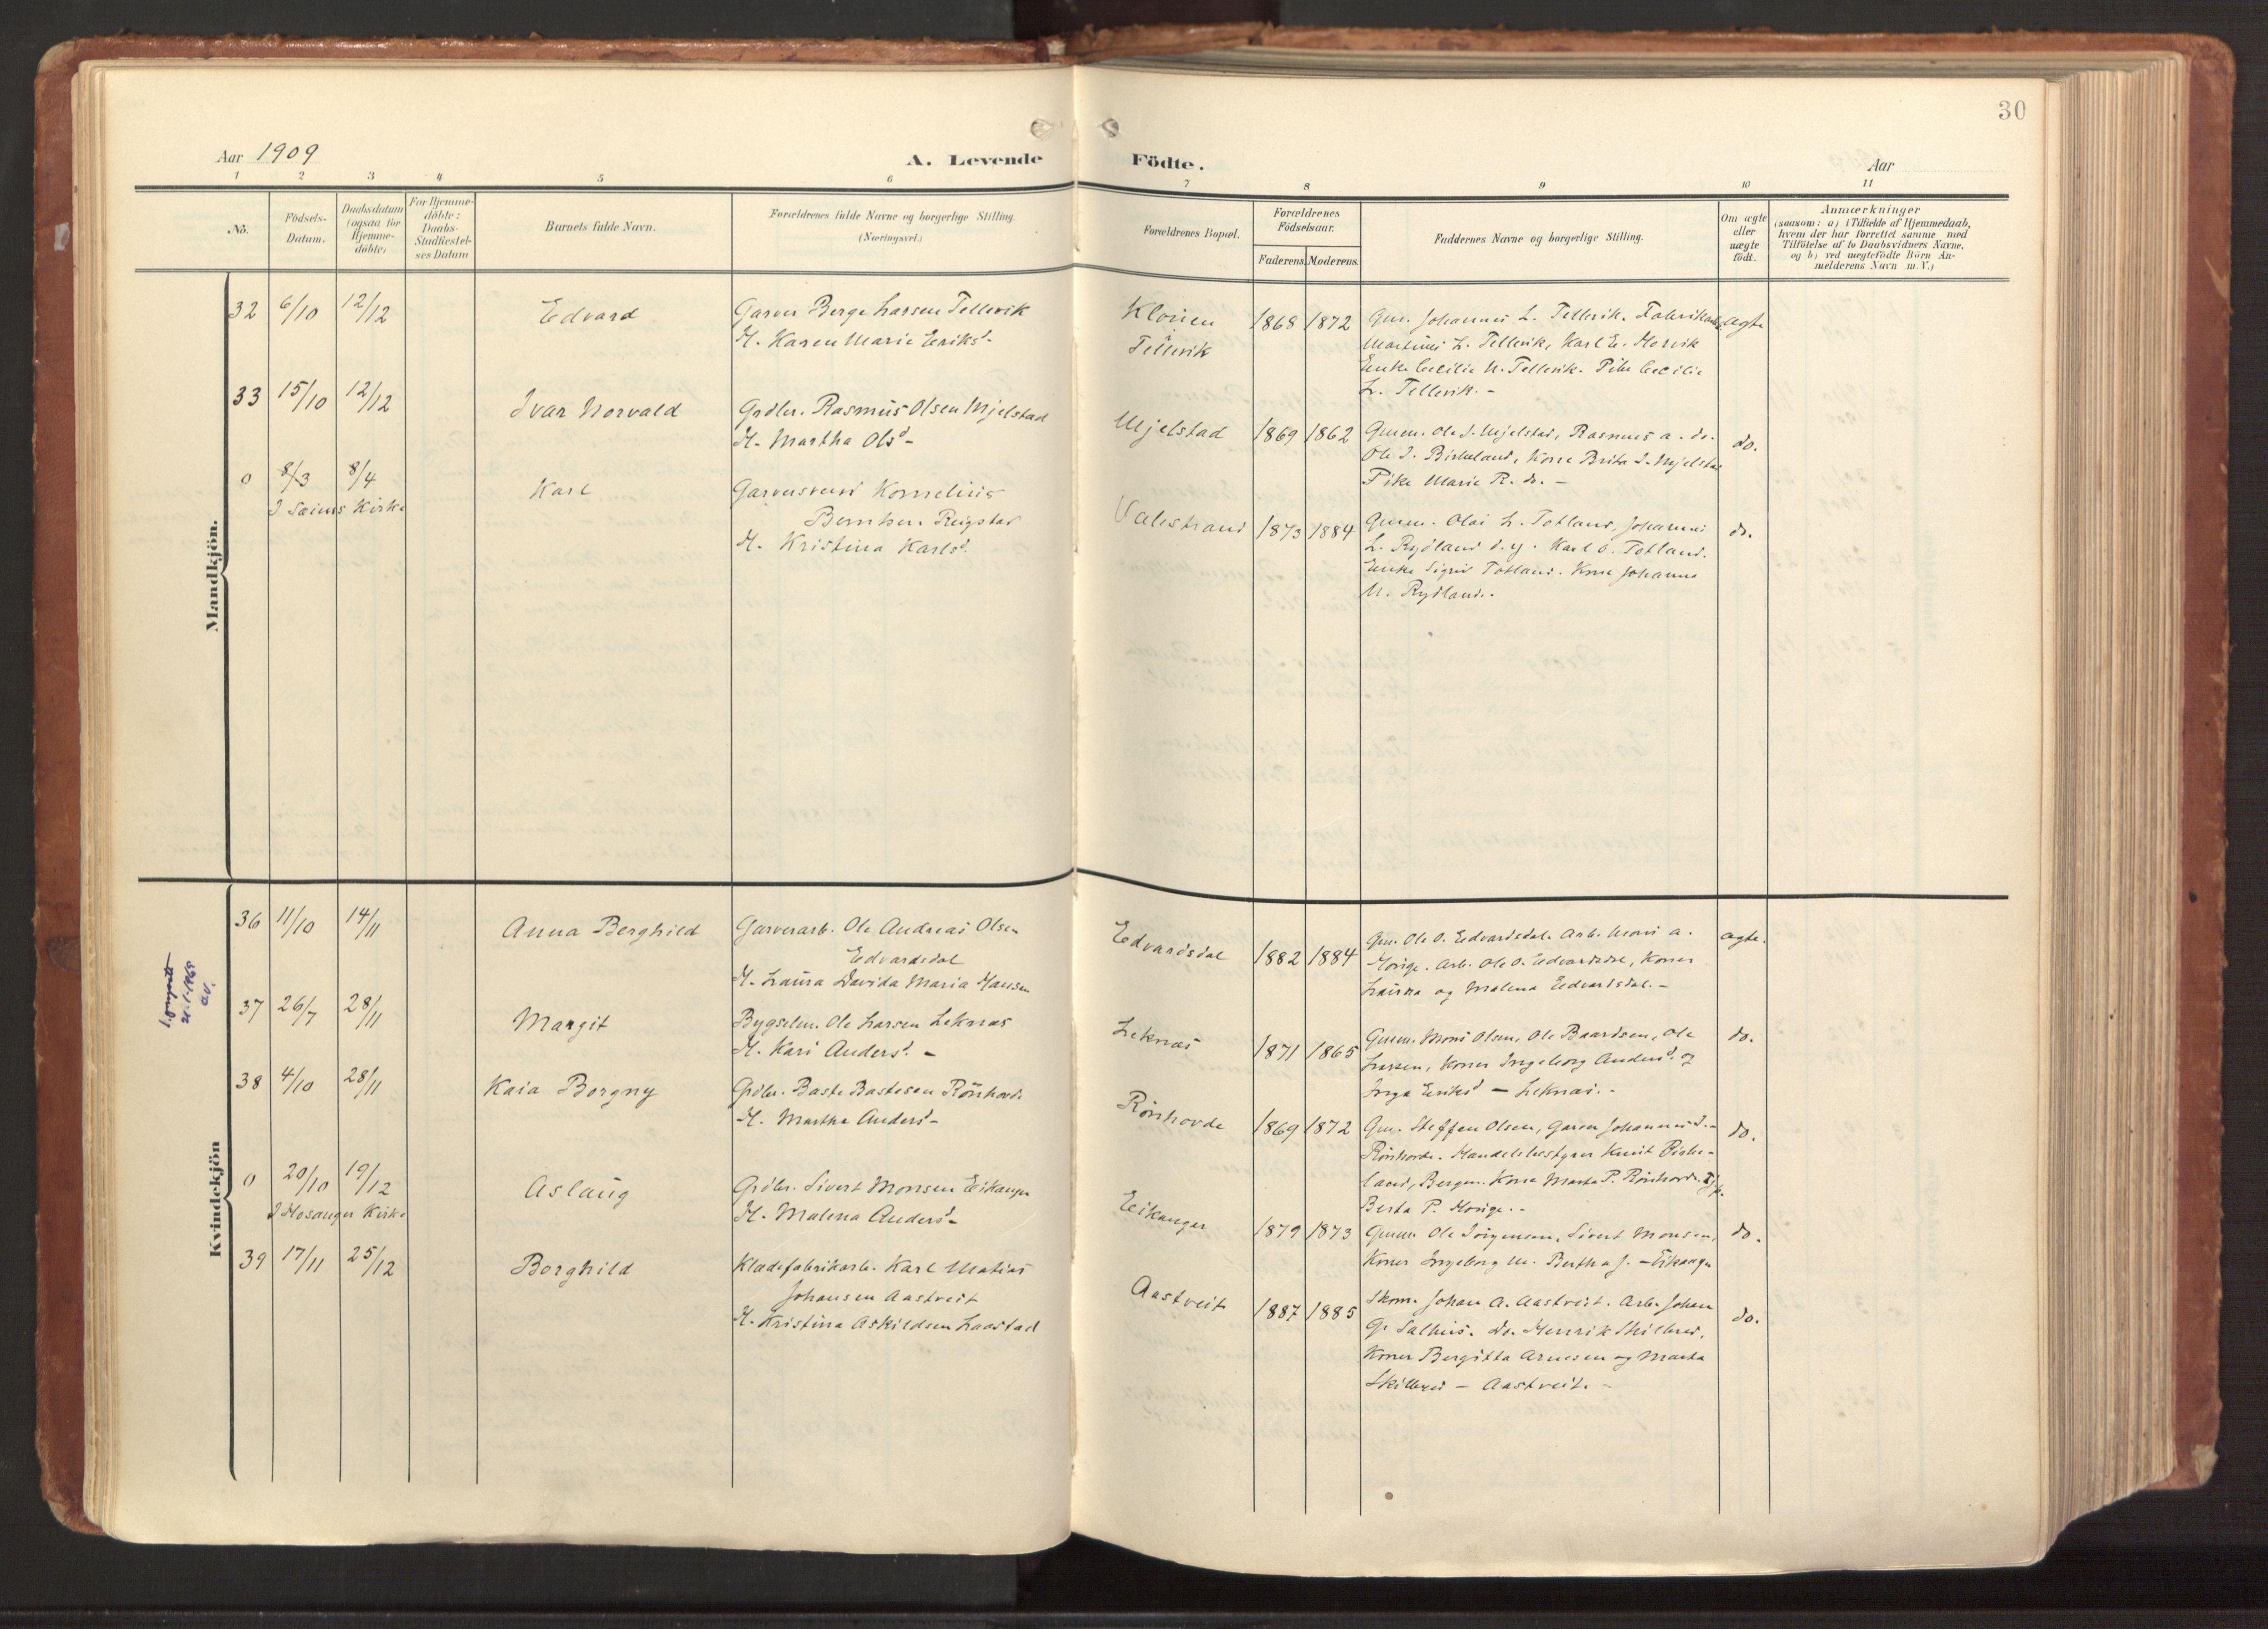 30
Aar 1909
A. Levende Födte.
Aar
1 2 3 4 5 6 7 8 9 10 11
No.
Födsels-Datum.
Daabsdatum (ogsaa for Hjemme-döbte)
For Hjemme-döbte: Daabs-Stadfæstel-ses Datum
Barnets fulde Navn.
Forældrenes fulde Navne og borgerlige Stilling. (Næringsvei.)
Forældrenes Bopæl.
Forældrenes Födselsaar.
Faderens. Moderens.
Faddernes Navne og borgerlige Stilling.
Om ægte eller uægte födt.
Anmærkninger
(saasom: a) i Tilfælde af Hjemmedaab,
hvem der har forrettet samme med
Tilföielse af to Daabsvidners Navne,
og b) ved uægtefödte Börn An-
melderens Navn m. V.)
Mandkjön.
32 6/10 12/12 Edvard Garver Berge Larsen Tellevik
H. Karen Marie Eriksd.
Klovien
Tellevik
1868 1872
Gm. Johannes L. Tellevik. Fabrikarb.
Martines L. Tellevik, Karl E. Hervik
Enke Cecilie N. Tellevik. Pike Cecilie
L. Tellevik. -
ægte
33 15/10 12/12 Ivar Norvald Grdbr. Rasmus Olsen Mjelstad
H. Martha Olsd -
Mjelstad 1869 1862
Gmen. Ole J. Mjelstad, Rasmus A. do.
Ole J. Birkeland, Kone Brita J. Mjelstad
Pike Marie R. do. -
do.
0 8/3 8/4 Karl Garversvend Kornelius
I Sæims Kirke
Berntsen Reigstad
H. Kristina Karlsd.
Valestrand 1873 1884
Gmen. Olai L. Totland, Johannes
L. Rydland d.y. Karl O. Totland.
Enke Sigrid Totland. Kone Johanna
N. Rydland.
do.
Kvindekjön
36 11/10 14/11 Anna Berghild Garverarb. Ole Andreas Olsen
Edvardsdal
H. Laura Davida Maria Hansen
Edvardsdal 1882 1884
Gm. Ole O. Edvardsdal. Arb. Mons A.
Horige. Arb. Ole O. Edvardsdal, Koner
Laura og Malena Edvardsdal. -
ægte.
21-1-1965
37 26/7 28/11 Margit Bygselm. Ole Larsen Leknæs
H. Kari Andersd. -
Leknæs 1871 1865
Gmen. Mons Olsen, Ole Baardsen, Ole
Larsen, Koner Ingeborg Andersd. og
Inga Eriksd - Leknæs. -
do.
38 4/10 28/11 Kaia Borgny Grdbr. Baste Bastesen Rönhovde
H. Martha Andersd -
Rönhovde 1869 1872
Gm. Steffen Olsen, Garver Johannes J. -
Rönhovde. Handelsbestyrer Knut Birke-
land, Bergen. Kone Marta P. Rönhovde.
Berta P. Horige. -
do.
0 20/10 19/12 Aslaug Grdbr. Sivert Monsen Eikanger
I Hosanger Kirke
H. Malena Andersd -
Eikanger 1879 1873
Gmen Ole Jörgensen, Sivert Monsen,
Koner Ingeborg M. Bertha J. - Eikanger
do.
39 17/11 25/12 Borghild Klædefabrikarb. Karl Matias
Johansen Aastveit
H. Kristina Askildsen Laastad
Aastveit 1887 1885
Skom. Johan A. Aastveit. Arb. Johan
G. Salhus. do. Henrik Skilbred,
Koner Bergitta Arnesen og Marta
Skilbred - Aastveit. -
do.